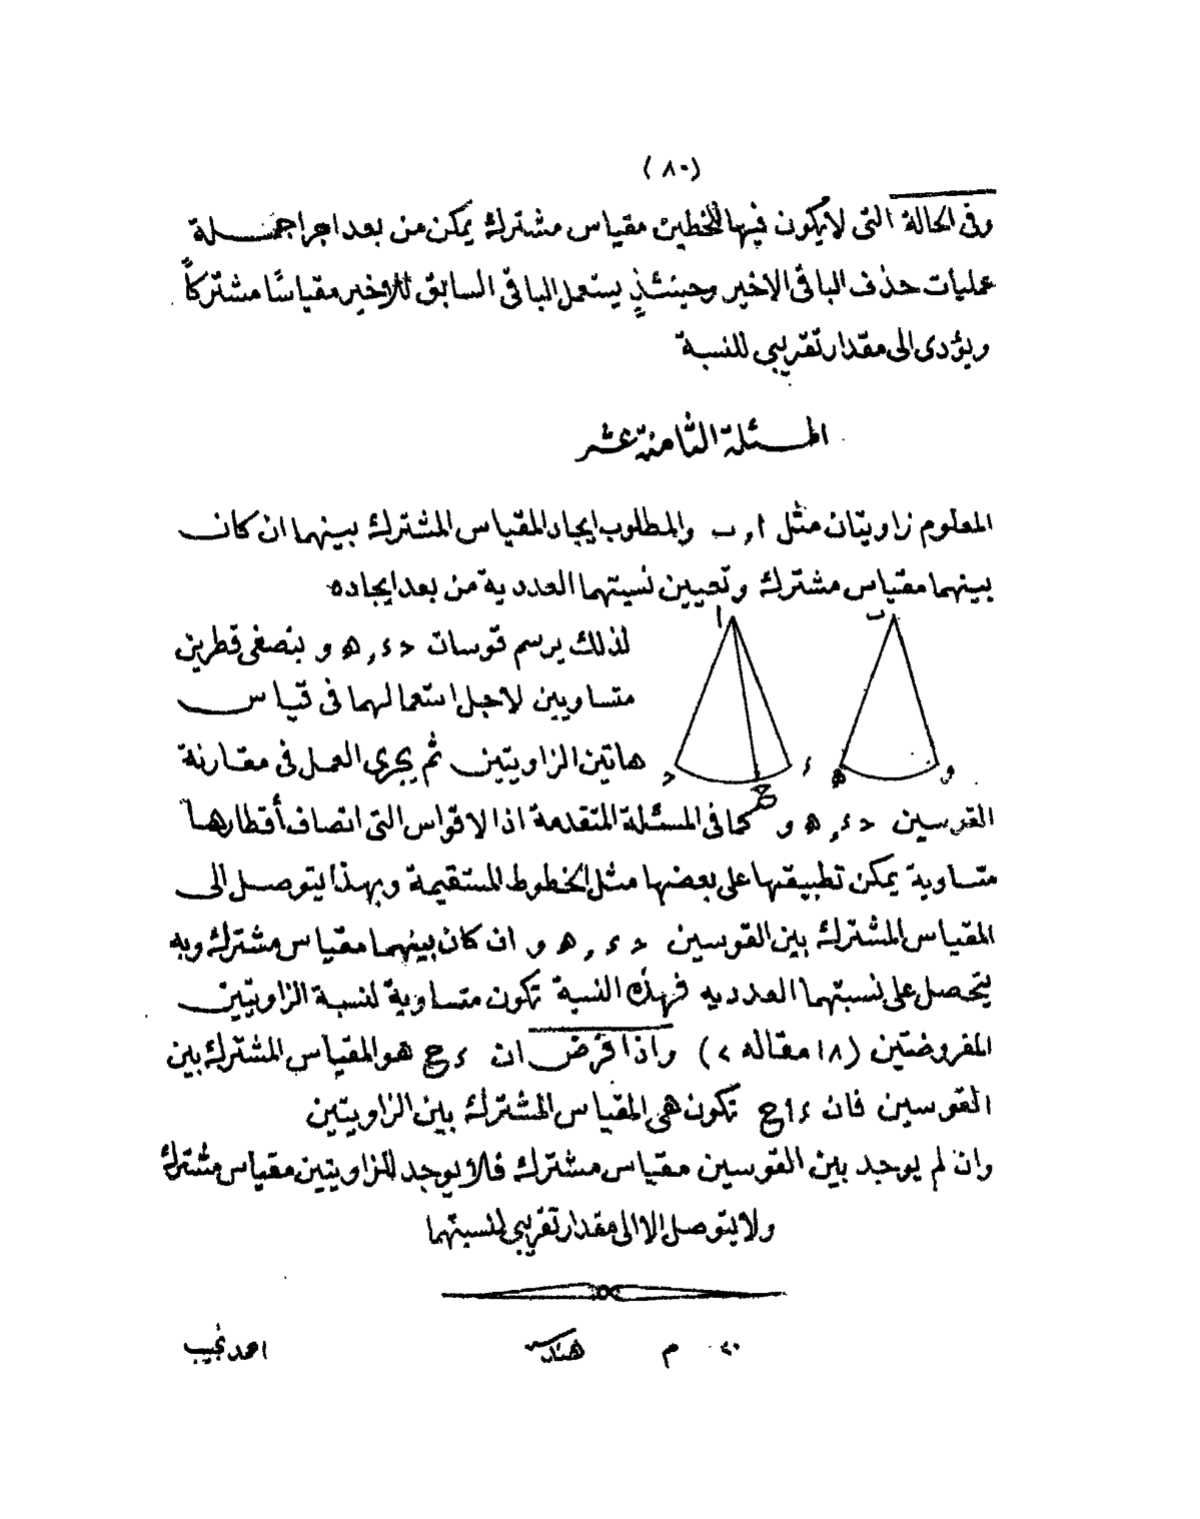 (٨٠)
وفى الحالة التى لايكون فيها للخطين مقياس مشترك يمكن من بعد اجرا جملة
عمليات حذف الباقى الاخير وحينئذٍ يستعمل الباقى السابق للاخير مقياسًا مشتركاً
ويؤدى الى مقدار تقريبى للنسبة
المسئلة الثامنة عشر
المعلوم زاويتان مثل ا , ب والمطلوب ايجاد المقياس المشترك بينهما ان كان
بينهما مقياس مشترك وتعيين نسبتهما العددية من بعد ايجاده
ا
ب
لذلك يرسم قوسات حء , ه و بنصفى قطرين
متساويين لاجل استعمالهما فى قياس
هاتين الزاويتين ثم يجرى العمل فى مقارنة
ح
ء
ه
و
ج
القوسين حء , ه و كما فى المسئلة المتقدمة اذ الاقواس التى انصاف أقطارها
متساوية يمكن تطبيقها على بعضها مثل الخطوط المستقيمة وبهذا يتوصل الى
المقياس المشترك بين القوسين حء , ه و ان كان بينهما مقياس مشترك وبه
يتحصل على نسبتهما العدديه فهذه النسبة تكون متساوية لنسبة الزاويتين
المفروضتين (١٨ مقاله ٢) واذا فرض ان ءج هو المقياس المشترك بين
القوسين فان ءاج تكون هى المقياس المشترك بين الزاويتين
وان لم يوجد بين القوسين مقياس مشترك فلا يوجد للزاويتين مقياس مشترك
ولا يتوصل الا الى مقدار تقريبى لنسبتهما
٢٠ م هندسة احمد نجيب